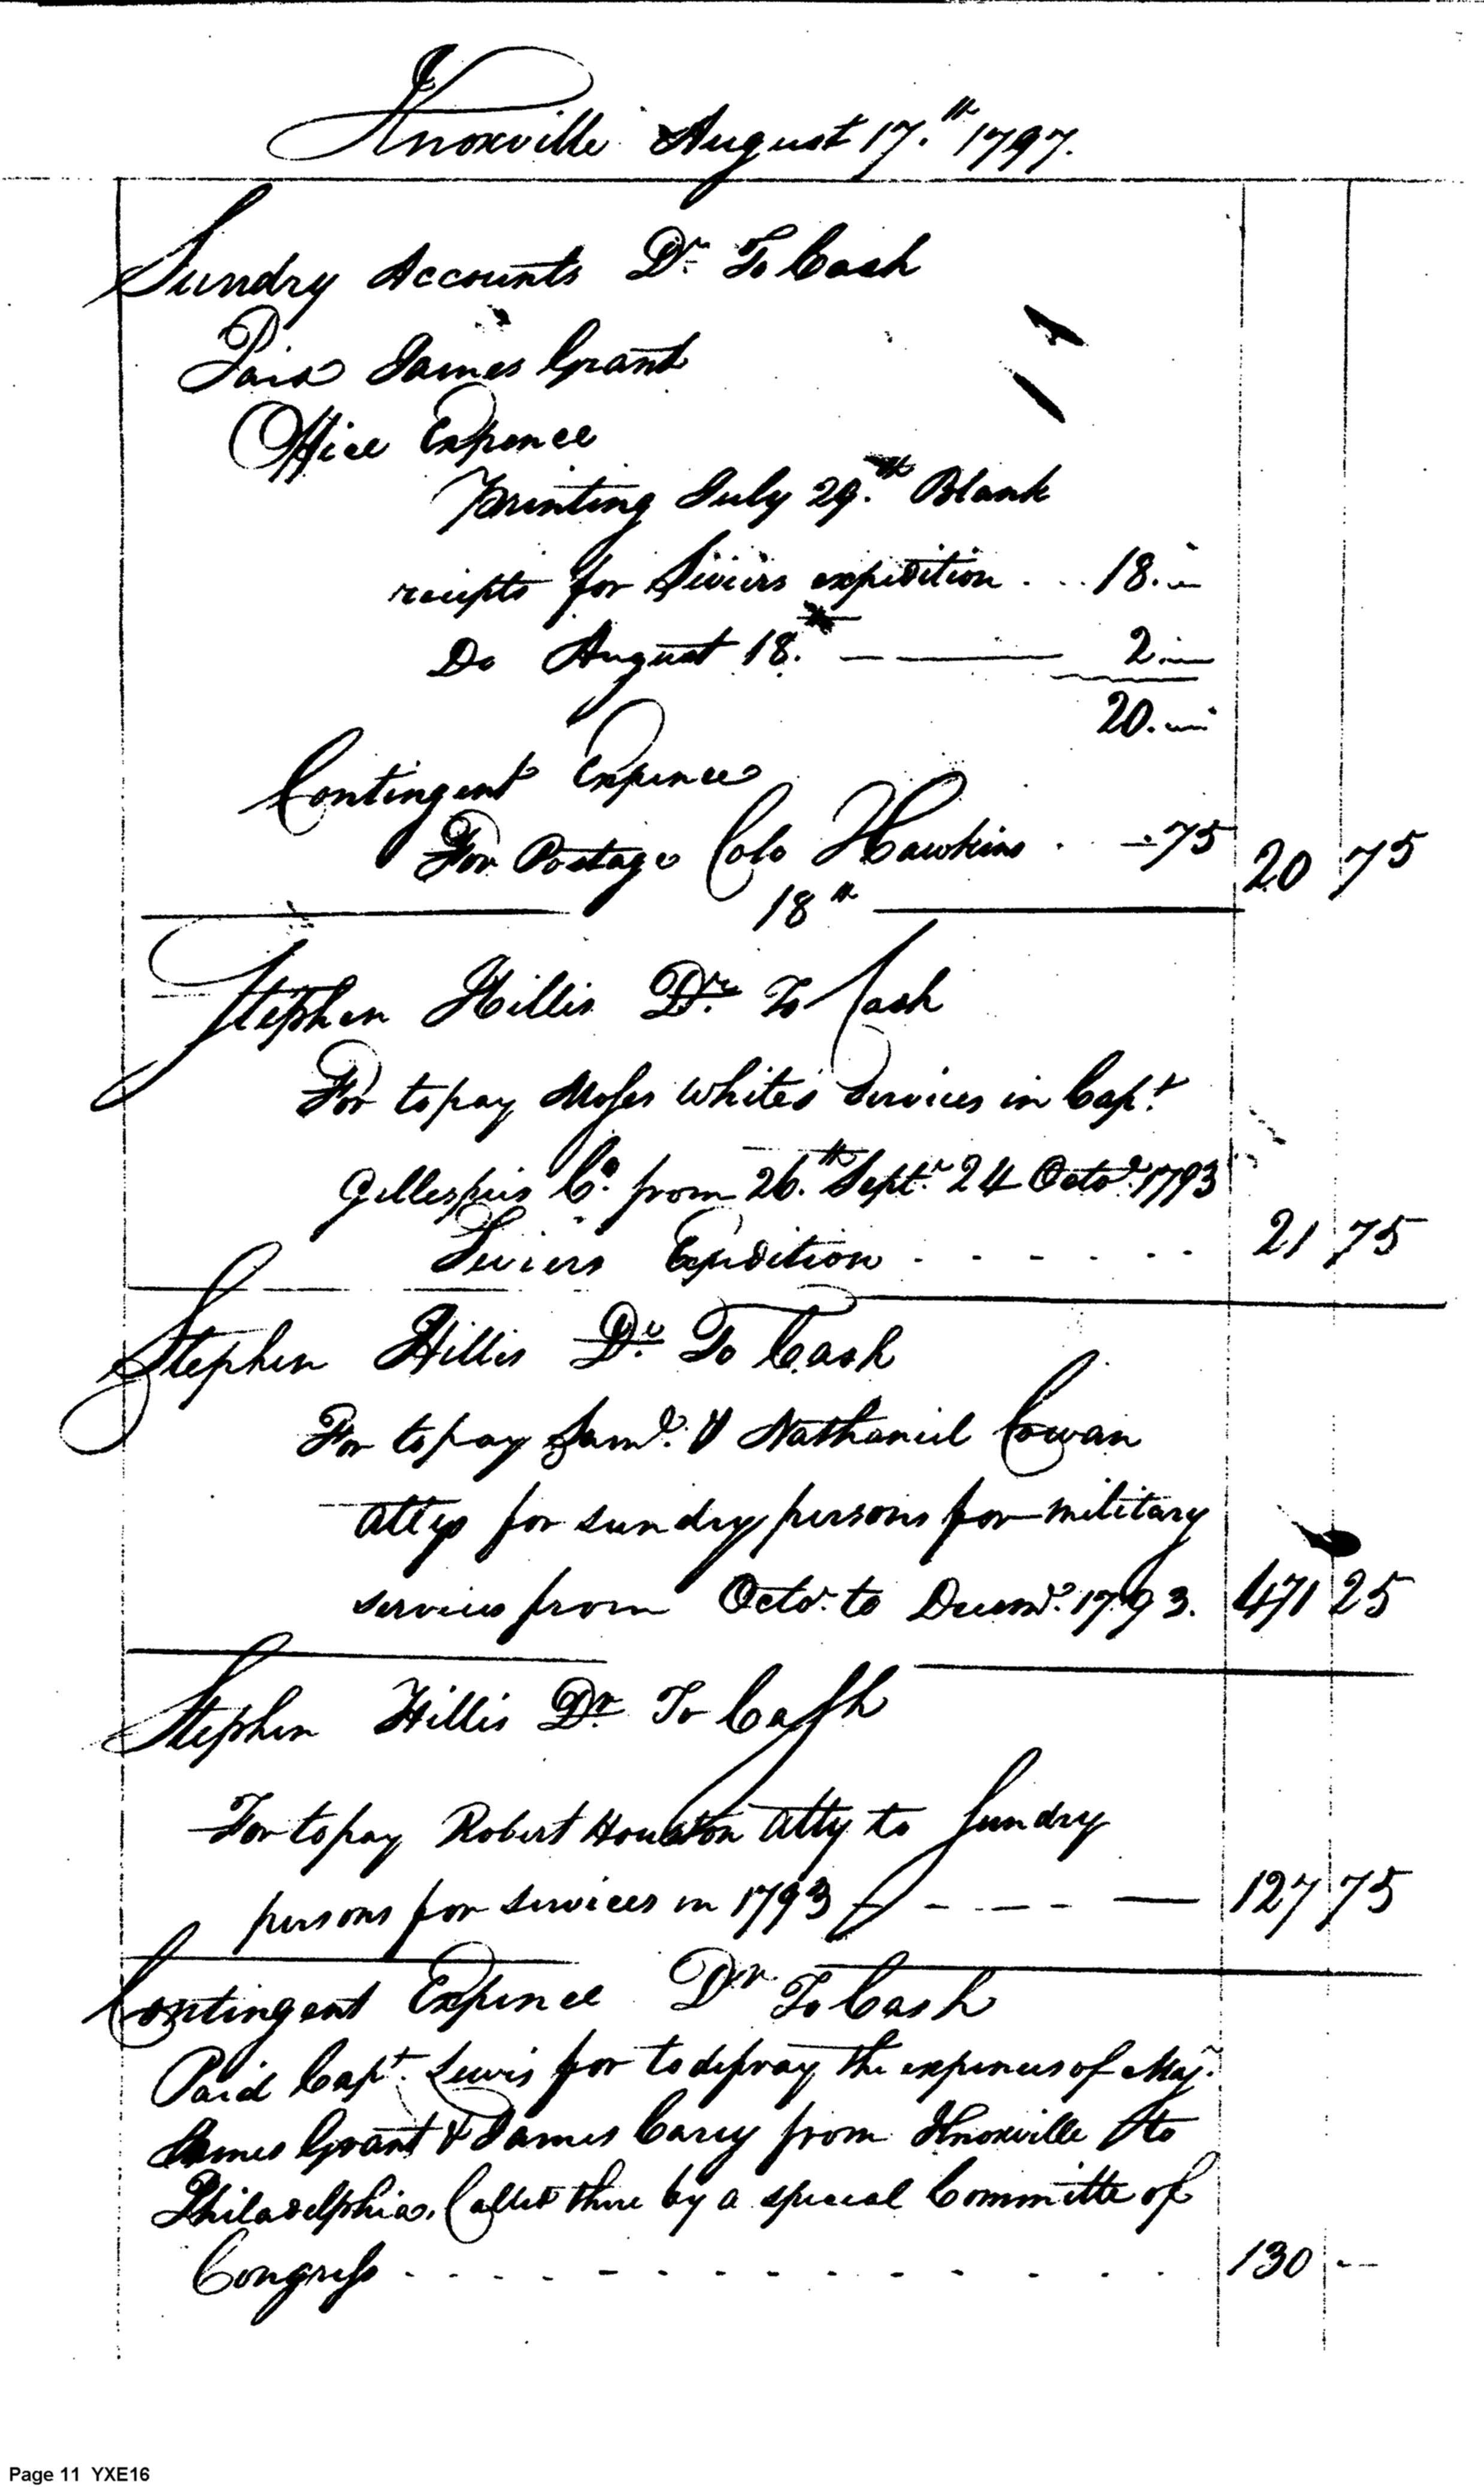 Knoxville August 17.th 1797.
Sundry Accounts Dr. To Cash
Paid James Grant
Office Expence
Printing July 29.th Blank
receipts for Seviers expedition . . . 18. "
Do August 18. — 2. "
20. "
Contingent Expence
For Postage Colo Hawkins . - 75 20 75
18th
Stephen Hillis Dr. To Cash
For to pay Moses White's Services in Capt.
Gillespies Co. from 26.th Sept. 24 Octor. 1793
Seviers Expedition . . . . . . 21 75
Stephen Hillis Dr. To Cash
For to pay Saml. & Nathaniel Cowan
Attys for sundry persons for military
services from Octr. to Decemr. 1793. 471 25
Stephen Hillis Dr. To Cash
For to pay Robert Houston Atty to Sundry
persons for services in 1793 - - - - — 127 75
Contingent Expence Dr To Cash
Paid Capt. Lewis for to defray the expences of Maj.
James Grant & James Carey from Knoxville to
Philadelphia, Called there by a special Committe of
Congress . . . . . . . . . . . . . . 130 --
Page 11 YXE16